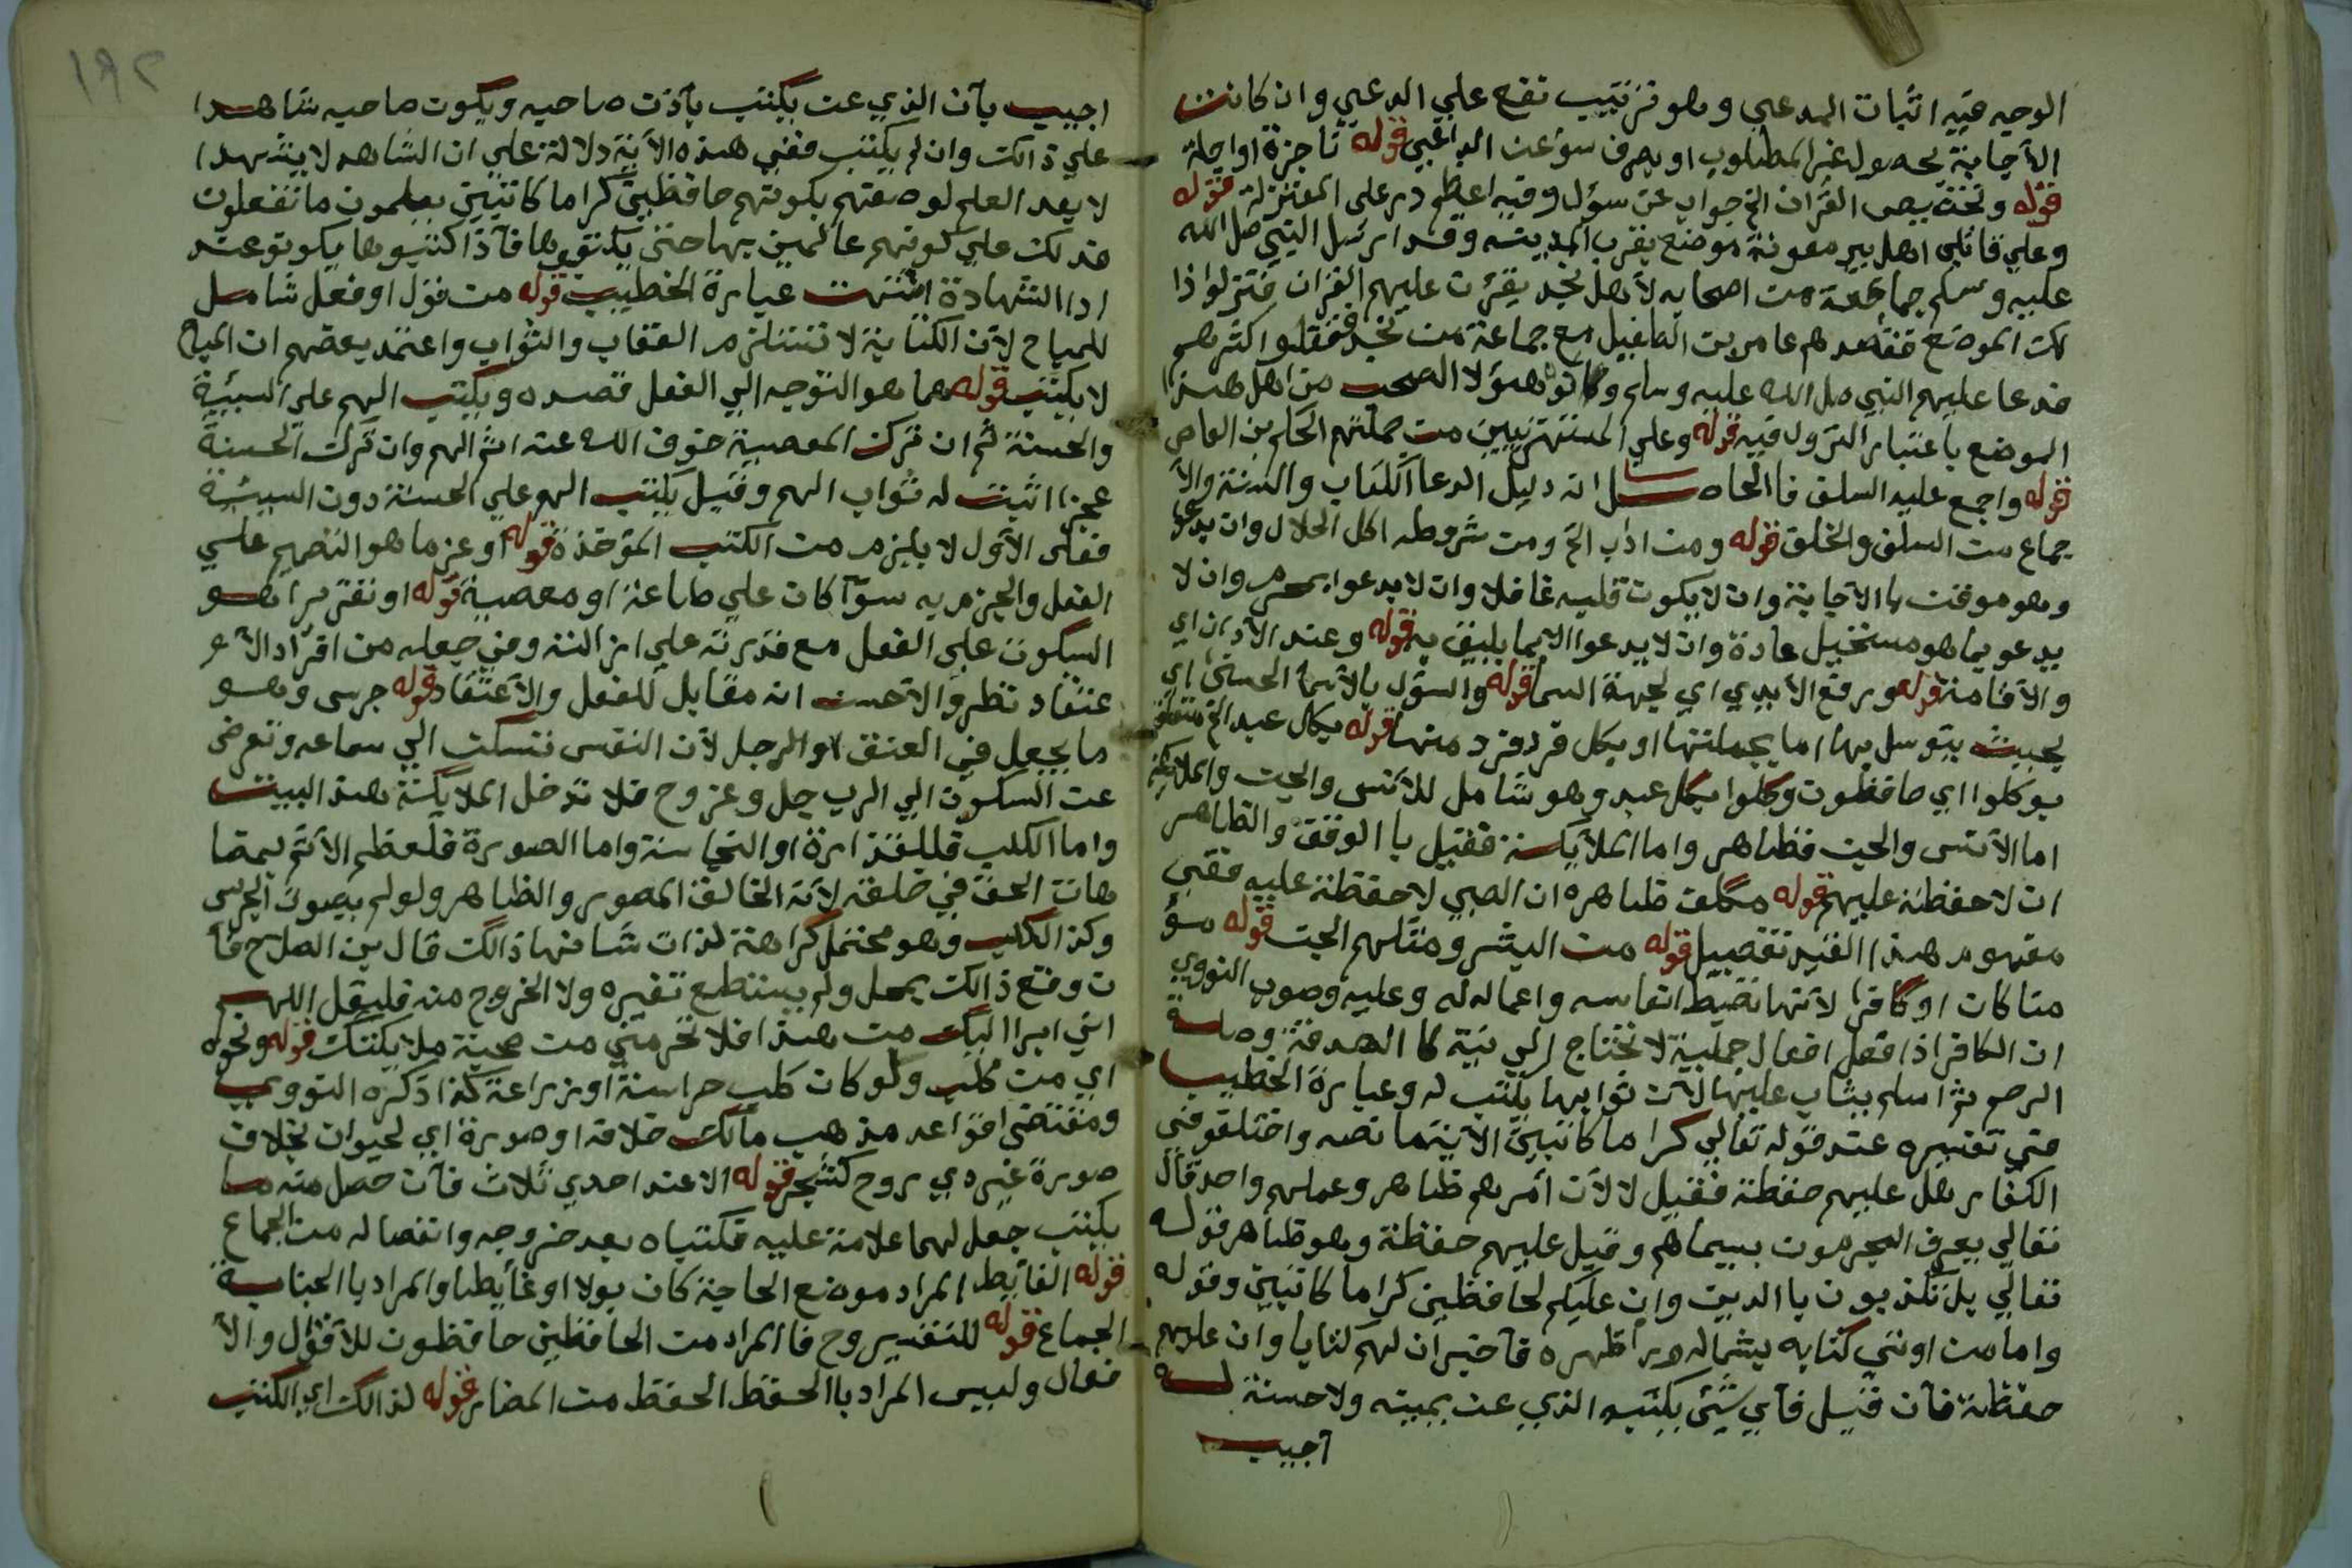 الوجيه فيه اثبات المدعي وهو ترتيب نفع علي الدعي وان كانت
الأجابة بحصول غير المطلوب او بصرف سوء عن الداعي قوله ناجزة او اجلة
قوله وتخصيص القران الخ جواب عن سؤل وفيه اعظم در علي المعتزلة قوله
وعلي قاتلي اهل بير معونة موضع بقرب المدينه وقد ارسل النبي صل الله
عليه وسلم جماعة من اصحابه لأهل نجد يقرئ عليهم القران فنزلوا ذا
لك الموضع فقصدهم عامر بن الطفيل مع جماعة من نجد فقتلوا اكثرهم
فدعا عليهم النبي صل الله عليه وسلم وكانو هؤلا من اهل هذا
الموضع باعتبار النزول فيه قوله وعلي المستهزئيين من جملتهم الحكم بن العاص
قوله واجمع عليه السلف فا الحاصل ان دليل الدعا الكتاب والسنة والأ
جماع من السلف والخلف قوله ومن اداب الخ ومن شروطه اكل الحلال وان يدعو
وهو موقن با الأجابة وان لا يكون قلبه غافلا وان لا يدعوا بمحرم وان لا
يدعو بما هو مستحيل عادة وان لا يدعوا الا بما يليق به قوله وعند الأذان اي
والأقامة قوله ورفع الأيدي اي لجهة السما قوله والسؤل بالأسما الحسنى اي
بحيث يتوسل بها اما بجملتها او بكل فرد فرد منها قوله بكل عبد الخ متعلق
بوكلوا اي حافظون وكلوا بكل عبد وهو شامل للأنس والجن والملايكة
اما الأنس والجن فظاهر واما الملأيكة فقيل با الوقف والظاهر
ان لا حفظة عليهم قوله مكلف ظاهره ان الصبي لا حفظة عليه ففي
مفهوم هذا القيد تفصيل قوله من البشر ومثلهم الجن قوله مؤ
منا كان او كافرا لأنها تضبط انفاسه واعماله له وعليه وصوب النووي
ان الكافر اذا فعل افعال جميلة لا تحتاج الي نية كا الصدقة وصلة
الرحم ثم اسلم يثاب عليها لأن ثوابها يكتب له وعبارة الخطيب
في تفسيره عند قوله تعالي كراما كاتبين الأية ما نصه واختلفو في
الكفار هل عليهم حفظة فقيل لا لأن أمرهم ظاهر وعملهم واحد قال
تعالي يعرف المجرمون بسيماهم وقيل عليهم حفظة وهو ظاهر قوله
تعالي بل تكذبون با الدين وان عليكم لحافظين كراما كاتبين وقوله
واما من اوتي كتابه بشماله ورأ ظهره فأخبر ان لهم كتابا وان عليهم
حفظة فأن قيل فأي شئ يكتب الذي عن يمينه ولا حسنة له
اجيب
١٩٢
اجيب بأن الذي عن يكتب بأذن صاحبه ويكون صاحبه شاهدا
علي ذالك وان لم يكتب ففي هذه الأية دلالة علي ان الشاهد لا يشهد ا
لا بعد العلم لوصفهم بكونهم حافظين كراما كاتبين يعلمون ما تفعلون
فدلك علي كونهم عالمين بها حتى يكتبوها فأذا كتبوها يكونو عند
ادا الشهادة انتهت عبارة الخطيب قوله من قول او فعل شامل
للمباح لأن الكتابة لا تستلزم العقاب والثواب واعتمد بعضهم ان المباح
لا يكتب قوله هما هو التوجه الي الفعل قصده ويكتب الهم علي السيئية
والحسنة ثم ان ترك المعصية خوف الله عنه اثم الهم وان ترك الحسنة
عجزا اثبت له ثواب الهم وقيل يكتب الهم علي الحسنة دون السيئية
فعلى الأول لا يلزم من الكتب المؤخذة قوله او عزما هو التصميم علي
الفعل والجزم به سوأ كان علي طاعة او معصية قوله او تقريرا هو
السكون علي الفعل مع قدرته علي ازالته وفي جعله من افراد الأ
عتقاد نظر والأحسن انه مقابل للفعل والأعتقاد قوله جرس وهو
ما يجعل في العنق او الرجل لأن النفس تسكن الي سماعه وتعرض
عن السكون الي الرب جل وعز وح فلا تدخل الملايكة هذا البيت
واما الكلب فللقذارة او النجاسة واما الصورة فلعظم الأثم بمضا
هات الحق في خلقه لأنه الخالق المصور والظاهر ولو لم يصوت الجرس
وكذ الكلب وهو محتمل كراهة لذات شانها ذالك قال بن الصلاح فأ
ن وقع ذالك بمحل ولم يستطع تغيره ولا الخروج منه فليقل اللهم
اني ابرا اليك من هذا فلا تحرمني من صحبة ملايكتك قوله ونحوه
اي من كلب ولو كان كلب حراسة او زراعة كذا ذكره النووي
ومقتضى قواعد مذهب مالك خلافه او صورة اي لحيوان بخلاف
صورة غير ذي روح كشجر قوله الا عند احدي ثلاث فأن حصل منه ما
يكتب جعل لهما علامة عليه فكتباه بعد خروجه وانفصاله من الجماع
قوله الغايط المراد موضع الحاجة كان بولا او غايطا والمراد با الجنابة
الجماع قوله للتفسير وح فا المراد من الحافظين حافظون للأقوال والأ
فعال وليس المراد با الحفظ الحفظ من المضار قوله لذالك اي الكتب